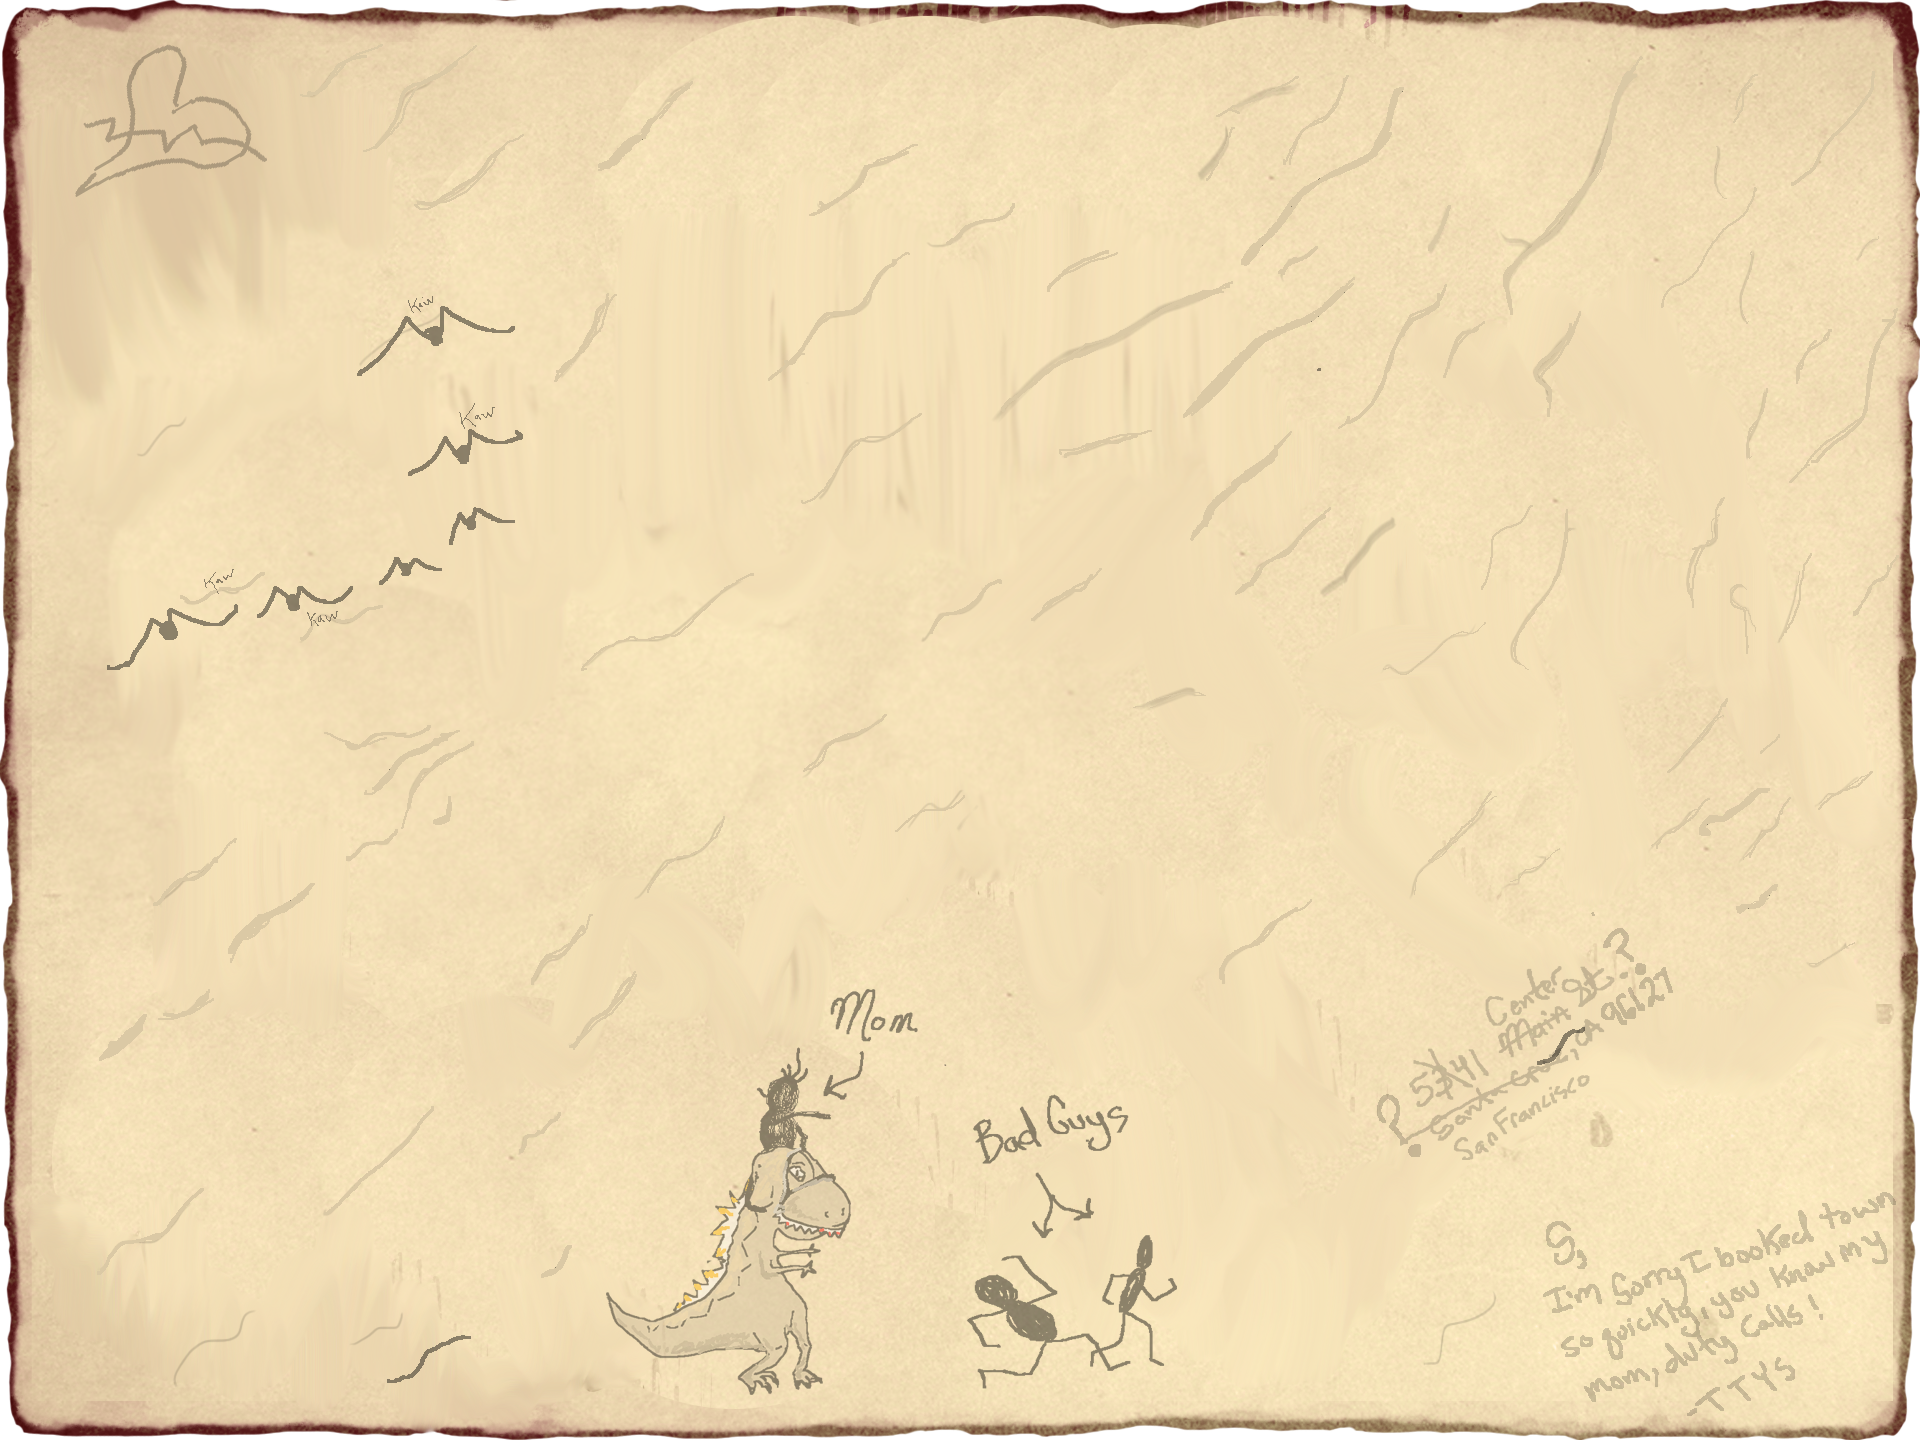 Kaw
Kaw
Kaw
Kaw
Mom
Bad Guys
Center
? 5741 Main St. ?
Santa Cruz, CA 96627
San Francisco
S,
I'm Sorry I booked town
so quickly, you know my
mom, duty calls!
-TTYS